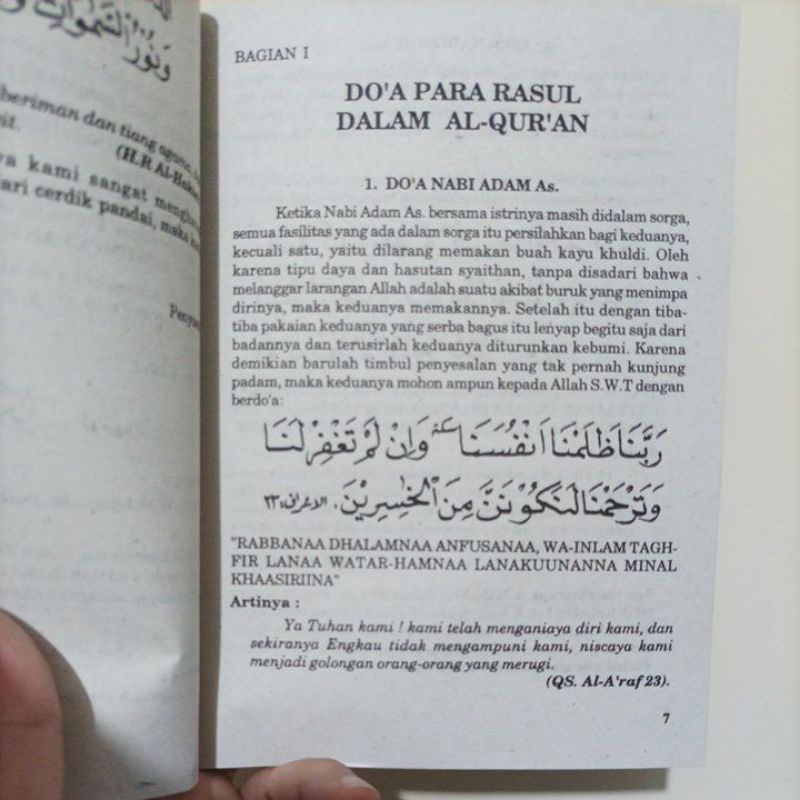 وَنُوْرُ السَّمٰوَاتِ
beriman dan tiang agama,
(H.R Al-
kami sangat
ari cerdik pandai, maka
BAGIAN I
DO'A PARA RASUL
DALAM AL-QUR'AN
1. DO'A NABI ADAM As.
Ketika Nabi Adam As. bersama istrinya masih didalam sorga,
semua fasilitas yang ada dalam sorga itu persilahkan bagi keduanya,
kecuali satu, yaitu dilarang memakan buah kayu khuldi. Oleh
karena tipu daya dan hasutan syaithan, tanpa disadari bahwa
melanggar larangan Allah adalah suatu akibat buruk yang menimpa
dirinya, maka keduanya memakannya. Setelah itu dengan tiba-
tiba pakaian keduanya yang serba bagus itu lenyap begitu saja dari
badannya dan terusirlah keduanya diturunkan kebumi. Karena
demikian barulah timbul penyesalan yang tak pernah kunjung
padam, maka keduanya mohon ampun kepada Allah S.W.T dengan
berdo'a:
رَبَّنَا ظَلَمْنَا اَنْفُسَنَا وَاِنْ لَمْ تَغْفِرْ لَنَا
وَتَرْحَمْنَا لَنَكُوْنَنَّ مِنَ الْخٰسِرِيْنَ. الاعراف ٢٣
"RABBANAA DHALAMNAA ANFUSANAA, WA-INLAM TAGH-
FIR LANAA WATAR-HAMNAA LANAKUUNANNA MINAL
KHAASIRIINA"
Artinya :
Ya Tuhan kami ! kami telah menganiaya diri kami, dan
sekiranya Engkau tidak mengampuni kami, niscaya kami
menjadi golongan orang-orang yang merugi.
(QS. Al-A'raf 23).
7